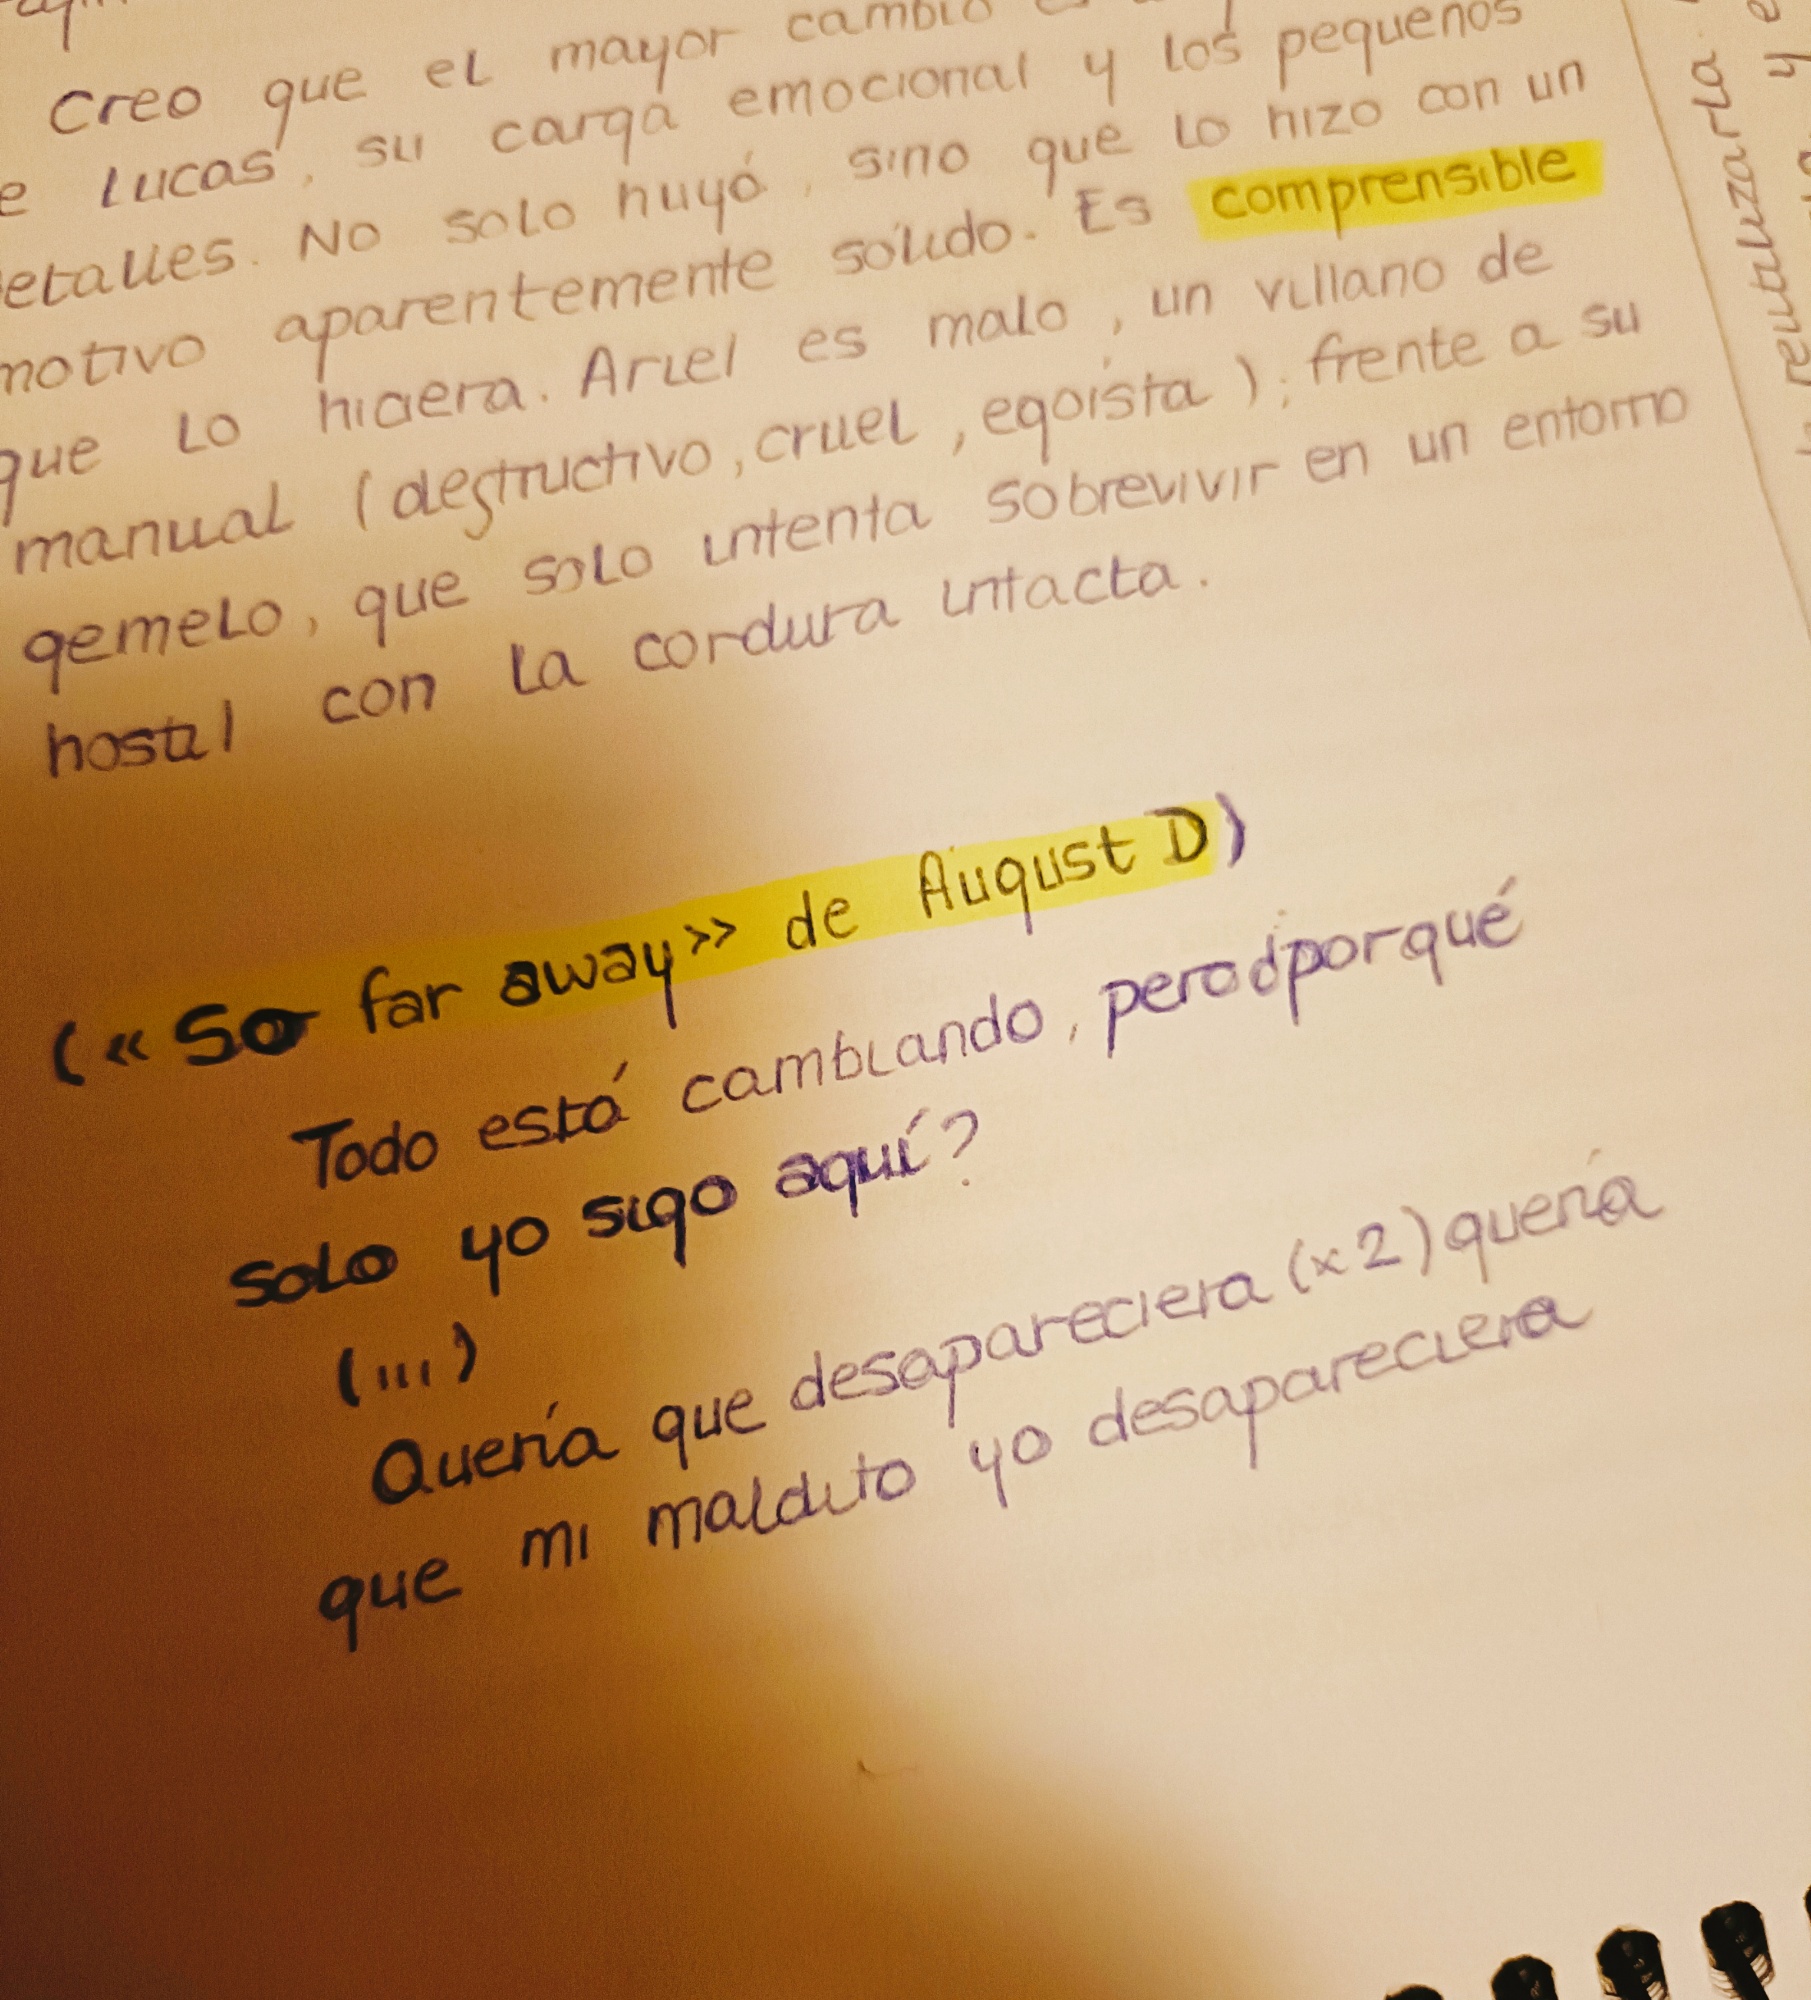 Creo que el mayor cambio
e Lucas, su carga emocional y los pequeños
etalles. No solo huyó, sino que lo hizo con un
motivo aparentemente sólido. Es comprensible
que lo hiciera. Ariel es malo, un villano de
manual (destructivo, cruel, egoísta); frente a su
gemelo, que solo intenta sobrevivir en un entorno
hostil con la cordura intacta.
(«So far away» de August D)
Todo está cambiando, pero ¿porqué
solo yo sigo aquí?
(...)
Quería que desapareciera (x2) quería
que mi maldito yo desapareciera
reutilizarla.
y